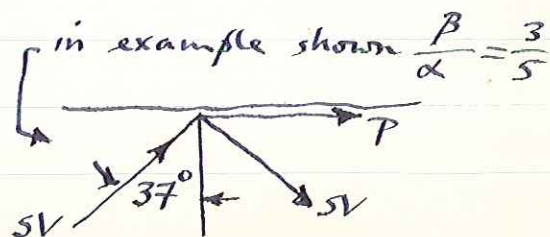 in example shown β/α = 3/5
P
37°
SV
SV